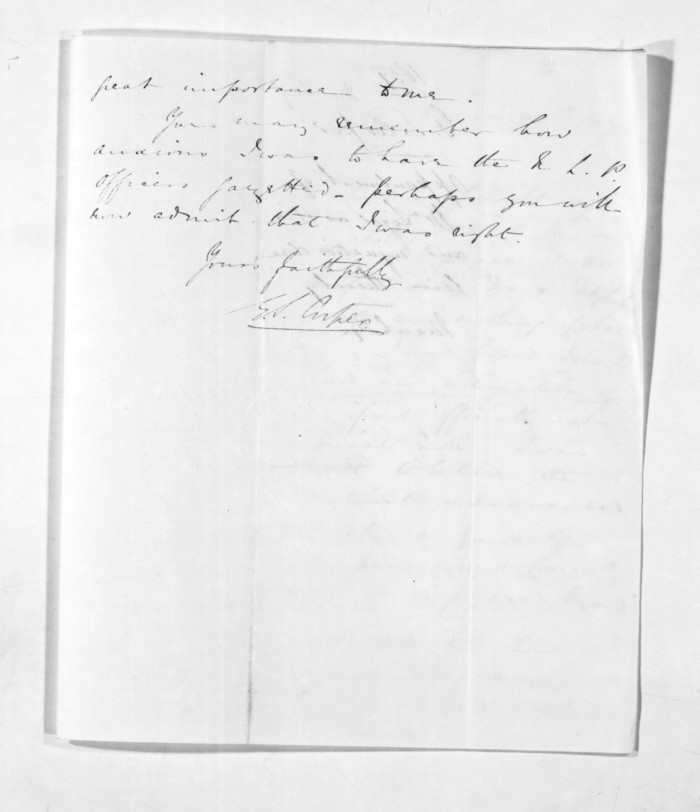 great importance to me.
You may remember how
anxious I was to have the N. L. P.
officers gazetted - perhaps you will
now admit that I was right.
Yours faithfully
G. S. Cooper